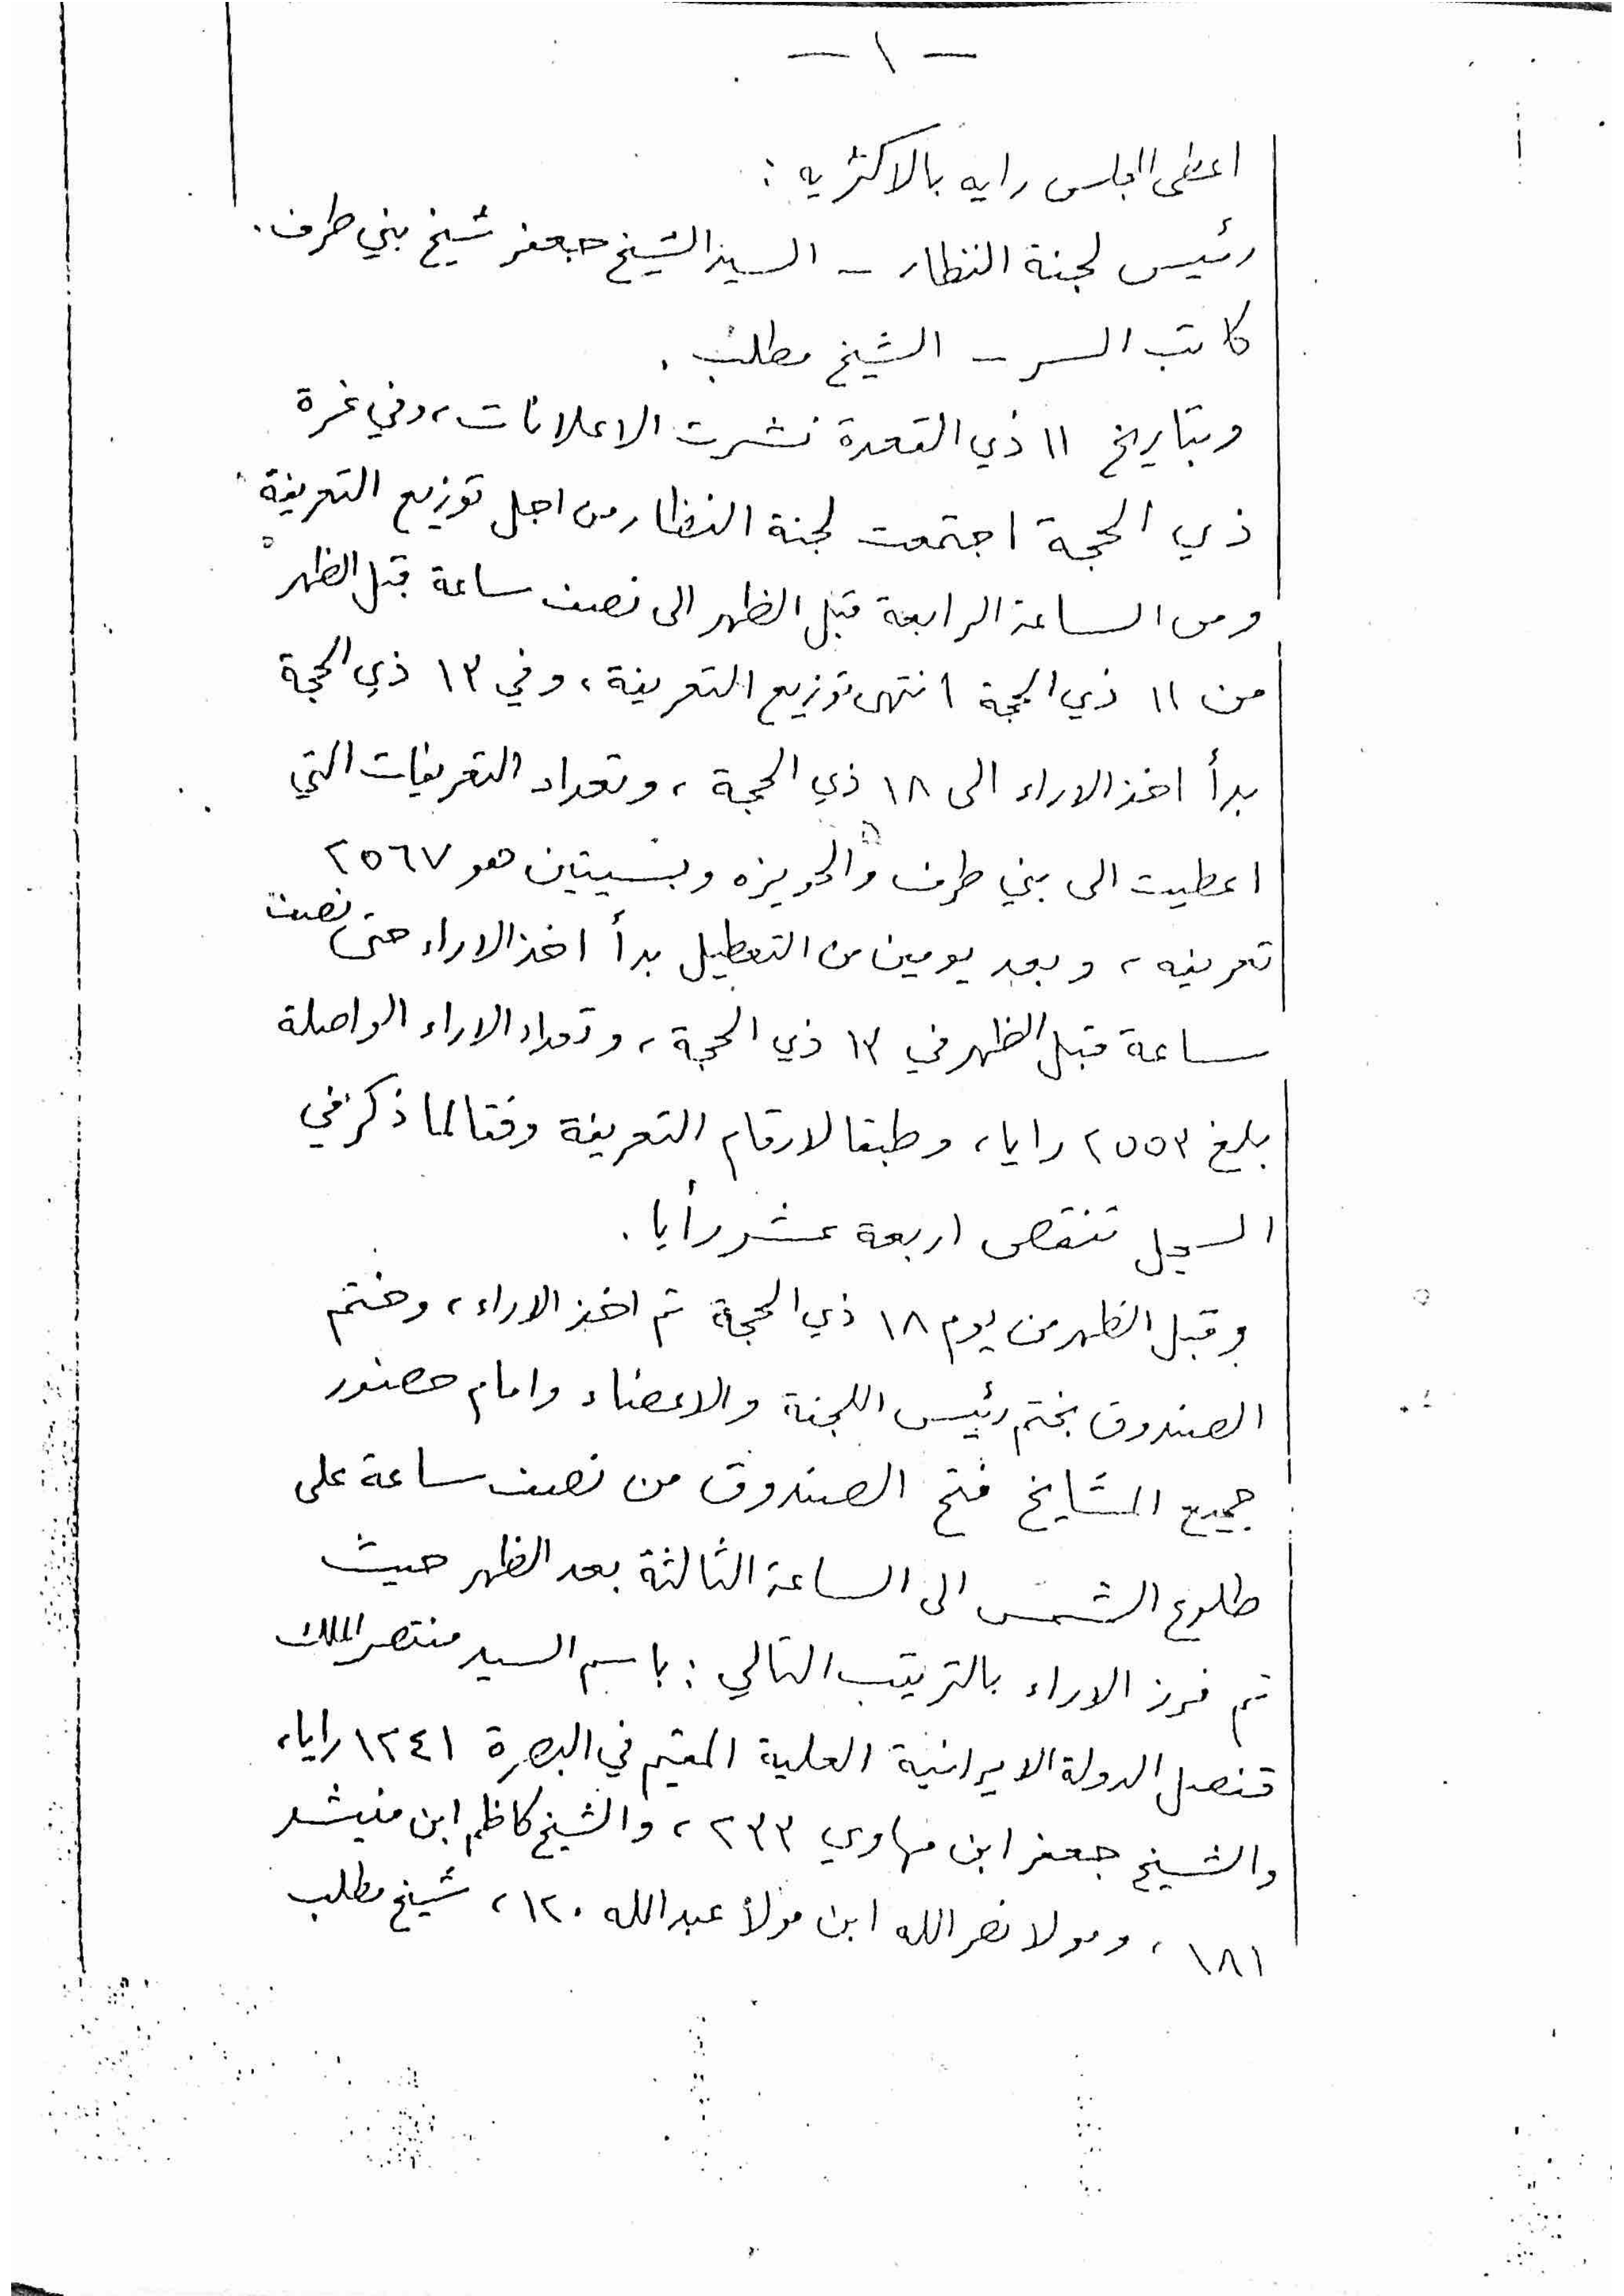 - ١ -
اعطى المجلس رايه بالاكثريه :
رئيس لجنة النظار - السيد الشيخ جعفر شيخ بني طرف .
كاتب السر - الشيخ مطلب .
وبتاريخ ١١ ذي القعدة نشرت الاعلانات ، وفي غرة
ذي الحجة اجتمعت لجنة النظار من اجل توزيع التعريفة
ومن الساعة الرابعة قبل الظهر الى نصف ساعة قبل الظهر
من ١١ ذي الحجة انتهى توزيع التعريفة ، وفي ١٣ ذي الحجة
بدأ اخذ الاراء الى ١٨ ذي الحجة ، وتعداد التعريفات التي
اعطيت الى بني طرف والحويزه وبسيتين هو ٢٥٦٧
تعريفه ، وبعد يومين من التعطيل بدأ اخذ الاراء حتى نصف
ساعة قبل الظهر في ١٣ ذي الحجة ، وتعداد الاراء الواصلة
بلغ ٢٥٥٣ رايا ، وطبقا لارقام التعريفة وفقا لما ذكر في
السجل تنقص اربعة عشر رأيا .
وقبل الظهر من يوم ١٨ ذي الحجة تم اخذ الاراء ، وختم
الصندوق بختم رئيس اللجنة والاعضاء وامام حضور
جميع المشايخ فتح الصندوق من نصف ساعة على
طلوع الشمس الى الساعة الثالثة بعد الظهر حيث
تم فرز الاراء بالترتيب التالي : باسم السيد منتصر الملك
قنصل الدولة الايرانية العلية المقيم في البصرة ١٢٤١ رايا ،
والشيخ جعفر ابن مهاوي ٢٣٣ ، والشيخ كاظم ابن منيشد
١٨١ ، ومولا نصر الله ابن مولا عبد الله ١٢٠ ، شيخ مطلب